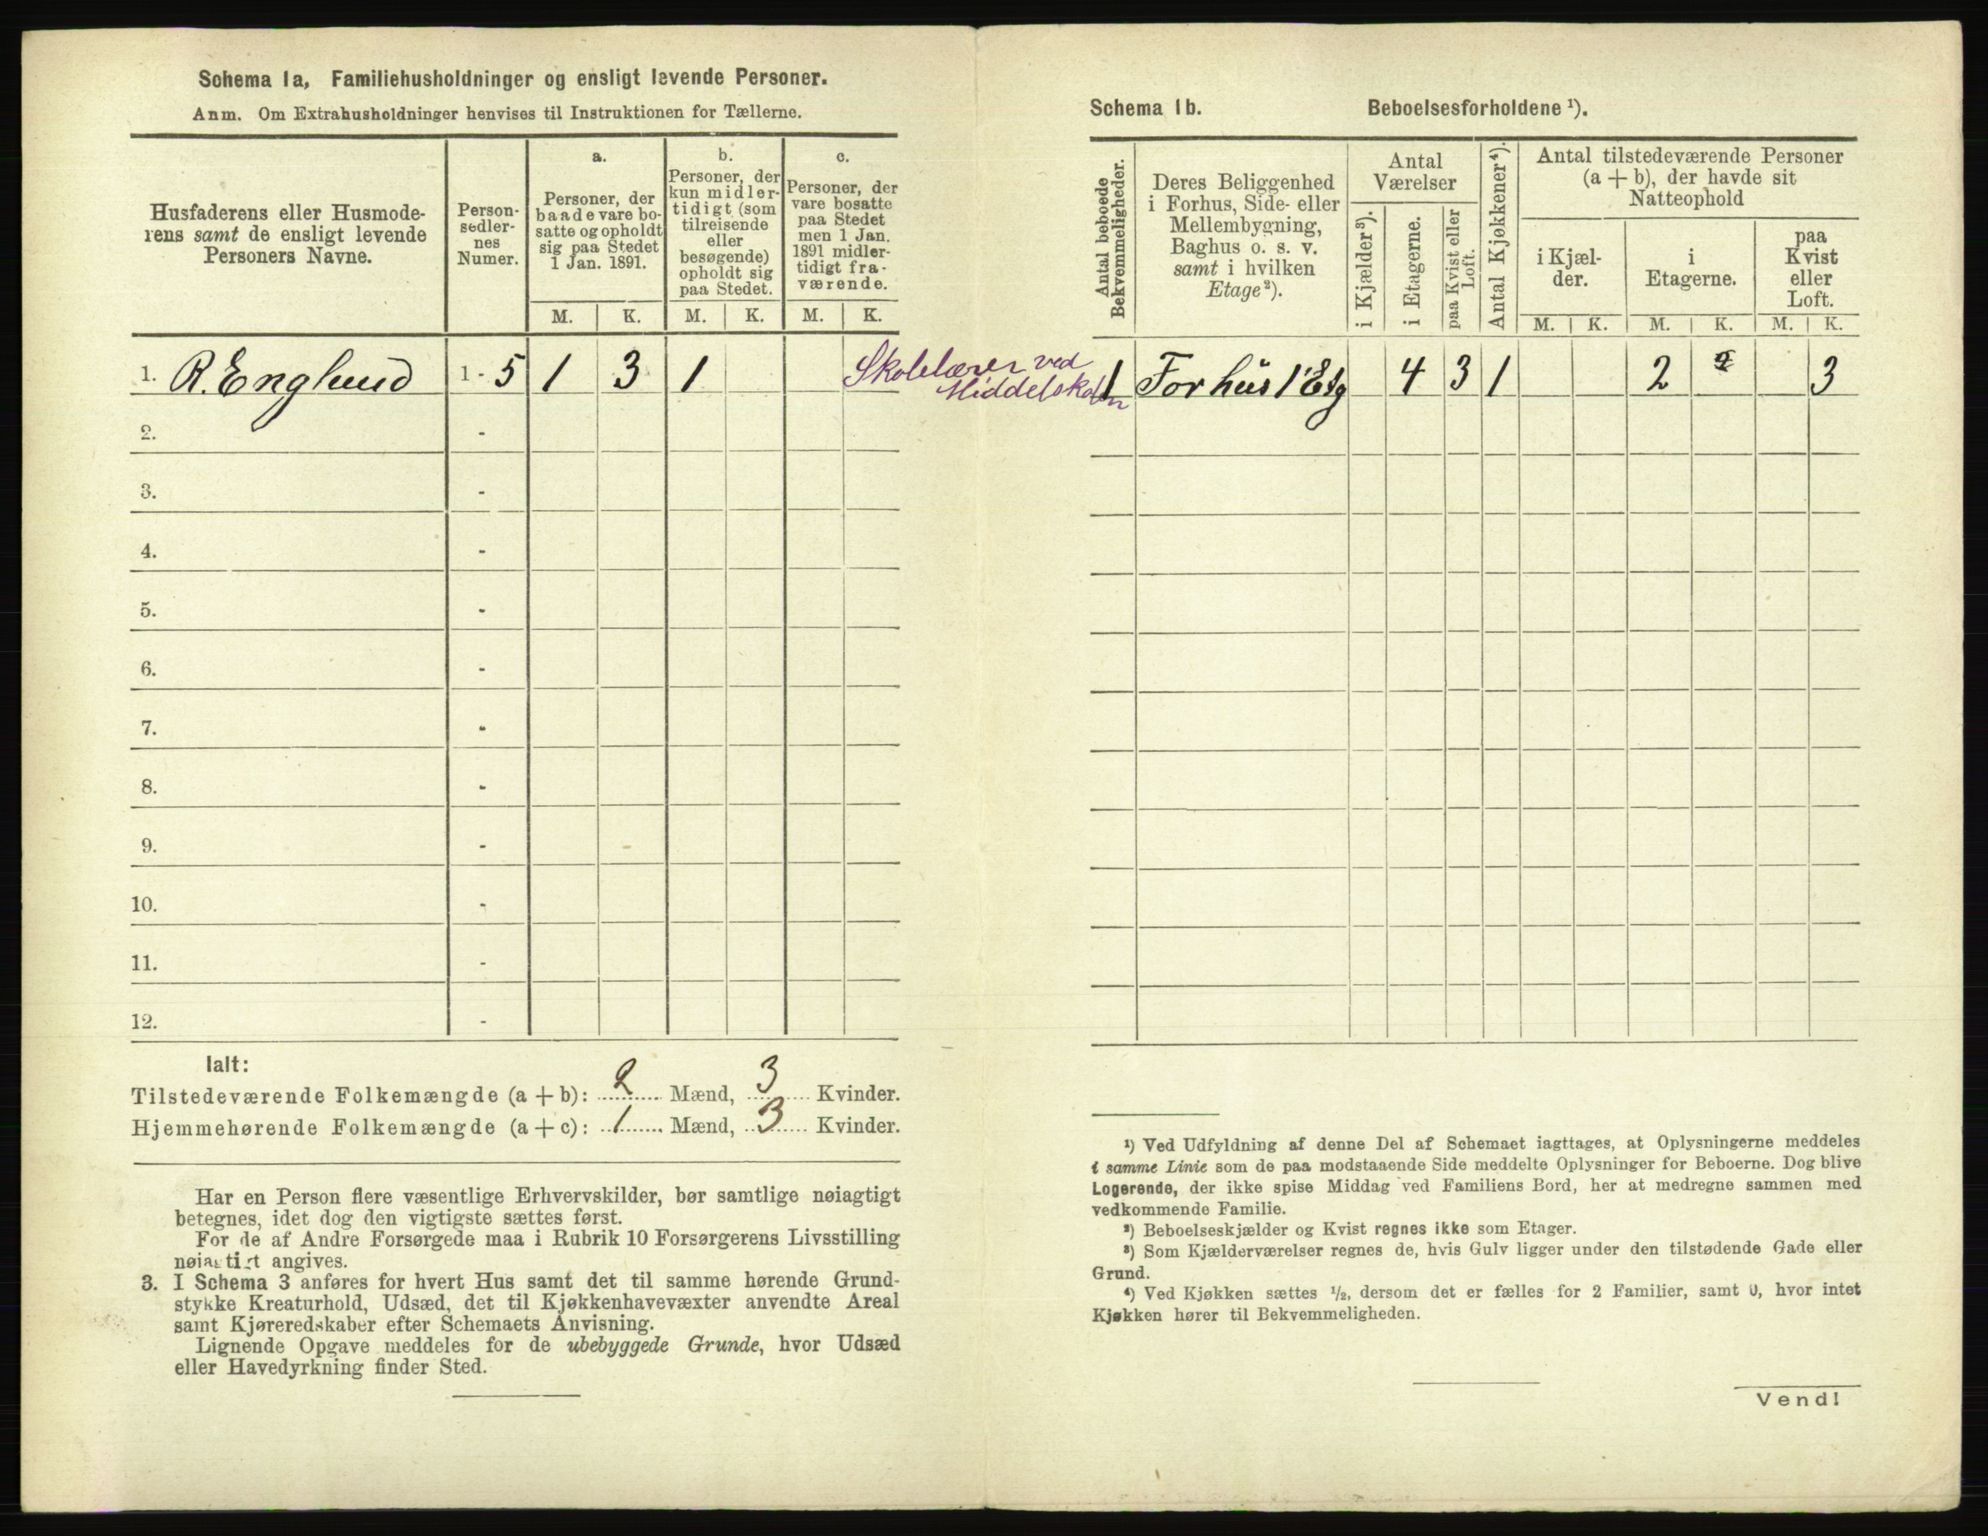 Schema 1a, Familiehusholdninger og ensligt levende Personer.
Anm. Om Extrahusholdninger henvises til Instruktionen for Tællerne.
Husfaderens eller Husmode-
rens samt de ensligt levende
Personers Navne.
Person-
sedler-
nes
Numer.
a.
Personer, der
baade vare bo-
satte og opholdt
sig paa Stedet
1 Jan. 1891.
b.
Personer, der
kun midler-
tidigt (som
tilreisende
eller
besøgende)
opholdt sig
paa Stedet.
c.
Personer, der
vare bosatte
paa Stedet
men 1 Jan.
1891 midler-
tidigt fra-
værende.
M. K. M. K. M. K.
1. R. Englund 1 - 5 1 3 1
Skolelærer ved
Middelskolen
2. -
3. -
4. -
5. -
6. -
7. -
8. -
9. -
10. -
11. -
12. -
Ialt:
Tilstedeværende Folkemængde (a + b): 2 Mænd, 3 Kvinder.
Hjemmehørende Folkemængde (a + c): 1 Mænd, 3 Kvinder.
Har en Person flere væsentlige Erhvervskilder, bør samtlige nøiagtigt
betegnes, idet dog den vigtigste sættes først.
For de af Andre Forsørgede maa i Rubrik 10 Forsørgerens Livsstilling
nøiagtigt angives.
3. I Schema 3 anføres for hvert Hus samt det til samme hørende Grund-
stykke Kreaturhold, Udsæd, det til Kjøkkenhavevæxter anvendte Areal
samt Kjøreredskaber efter Schemaets Anvisning.
Lignende Opgave meddeles for de ubebyggede Grunde, hvor Udsæd
eller Havedyrkning finder Sted.
Schema 1b. Beboelsesforholdene ¹).
Antal beboede
Bekvemmeligheder.
Deres Beliggenhed
i Forhus, Side- eller
Mellembygning,
Baghus o. s. v.
samt i hvilken
Etage²).
Antal
Værelser
i Kjælder³).
i Etagerne.
paa Kvist eller
Loft.
Antal Kjøkkener⁴).
Antal tilstedeværende Personer
(a + b), der havde sit
Natteophold
i Kjæl-
der.
i
Etagerne.
paa
Kvist
eller
Loft.
M. K. M. K. M. K.
1 Forhus 1 Etg 4 3 1 2 3
¹) Ved Udfyldning af denne Del af Schemaet iagttages, at Oplysningerne meddeles
i samme Linie som de paa modstaaende Side meddelte Oplysninger for Beboerne. Dog blive
Logerende, der ikke spise Middag ved Familiens Bord, her at medregne sammen med
vedkommende Familie.
²) Beboelseskjælder og Kvist regnes ikke som Etager.
³) Som Kjælderværelser regnes de, hvis Gulv ligger under den tilstødende Gade eller
Grund.
⁴) Ved Kjøkken sættes ½, dersom det er fælles for 2 Familier, samt 0, hvor intet
Kjøkken hører til Bekvemmeligheden.
Vend!